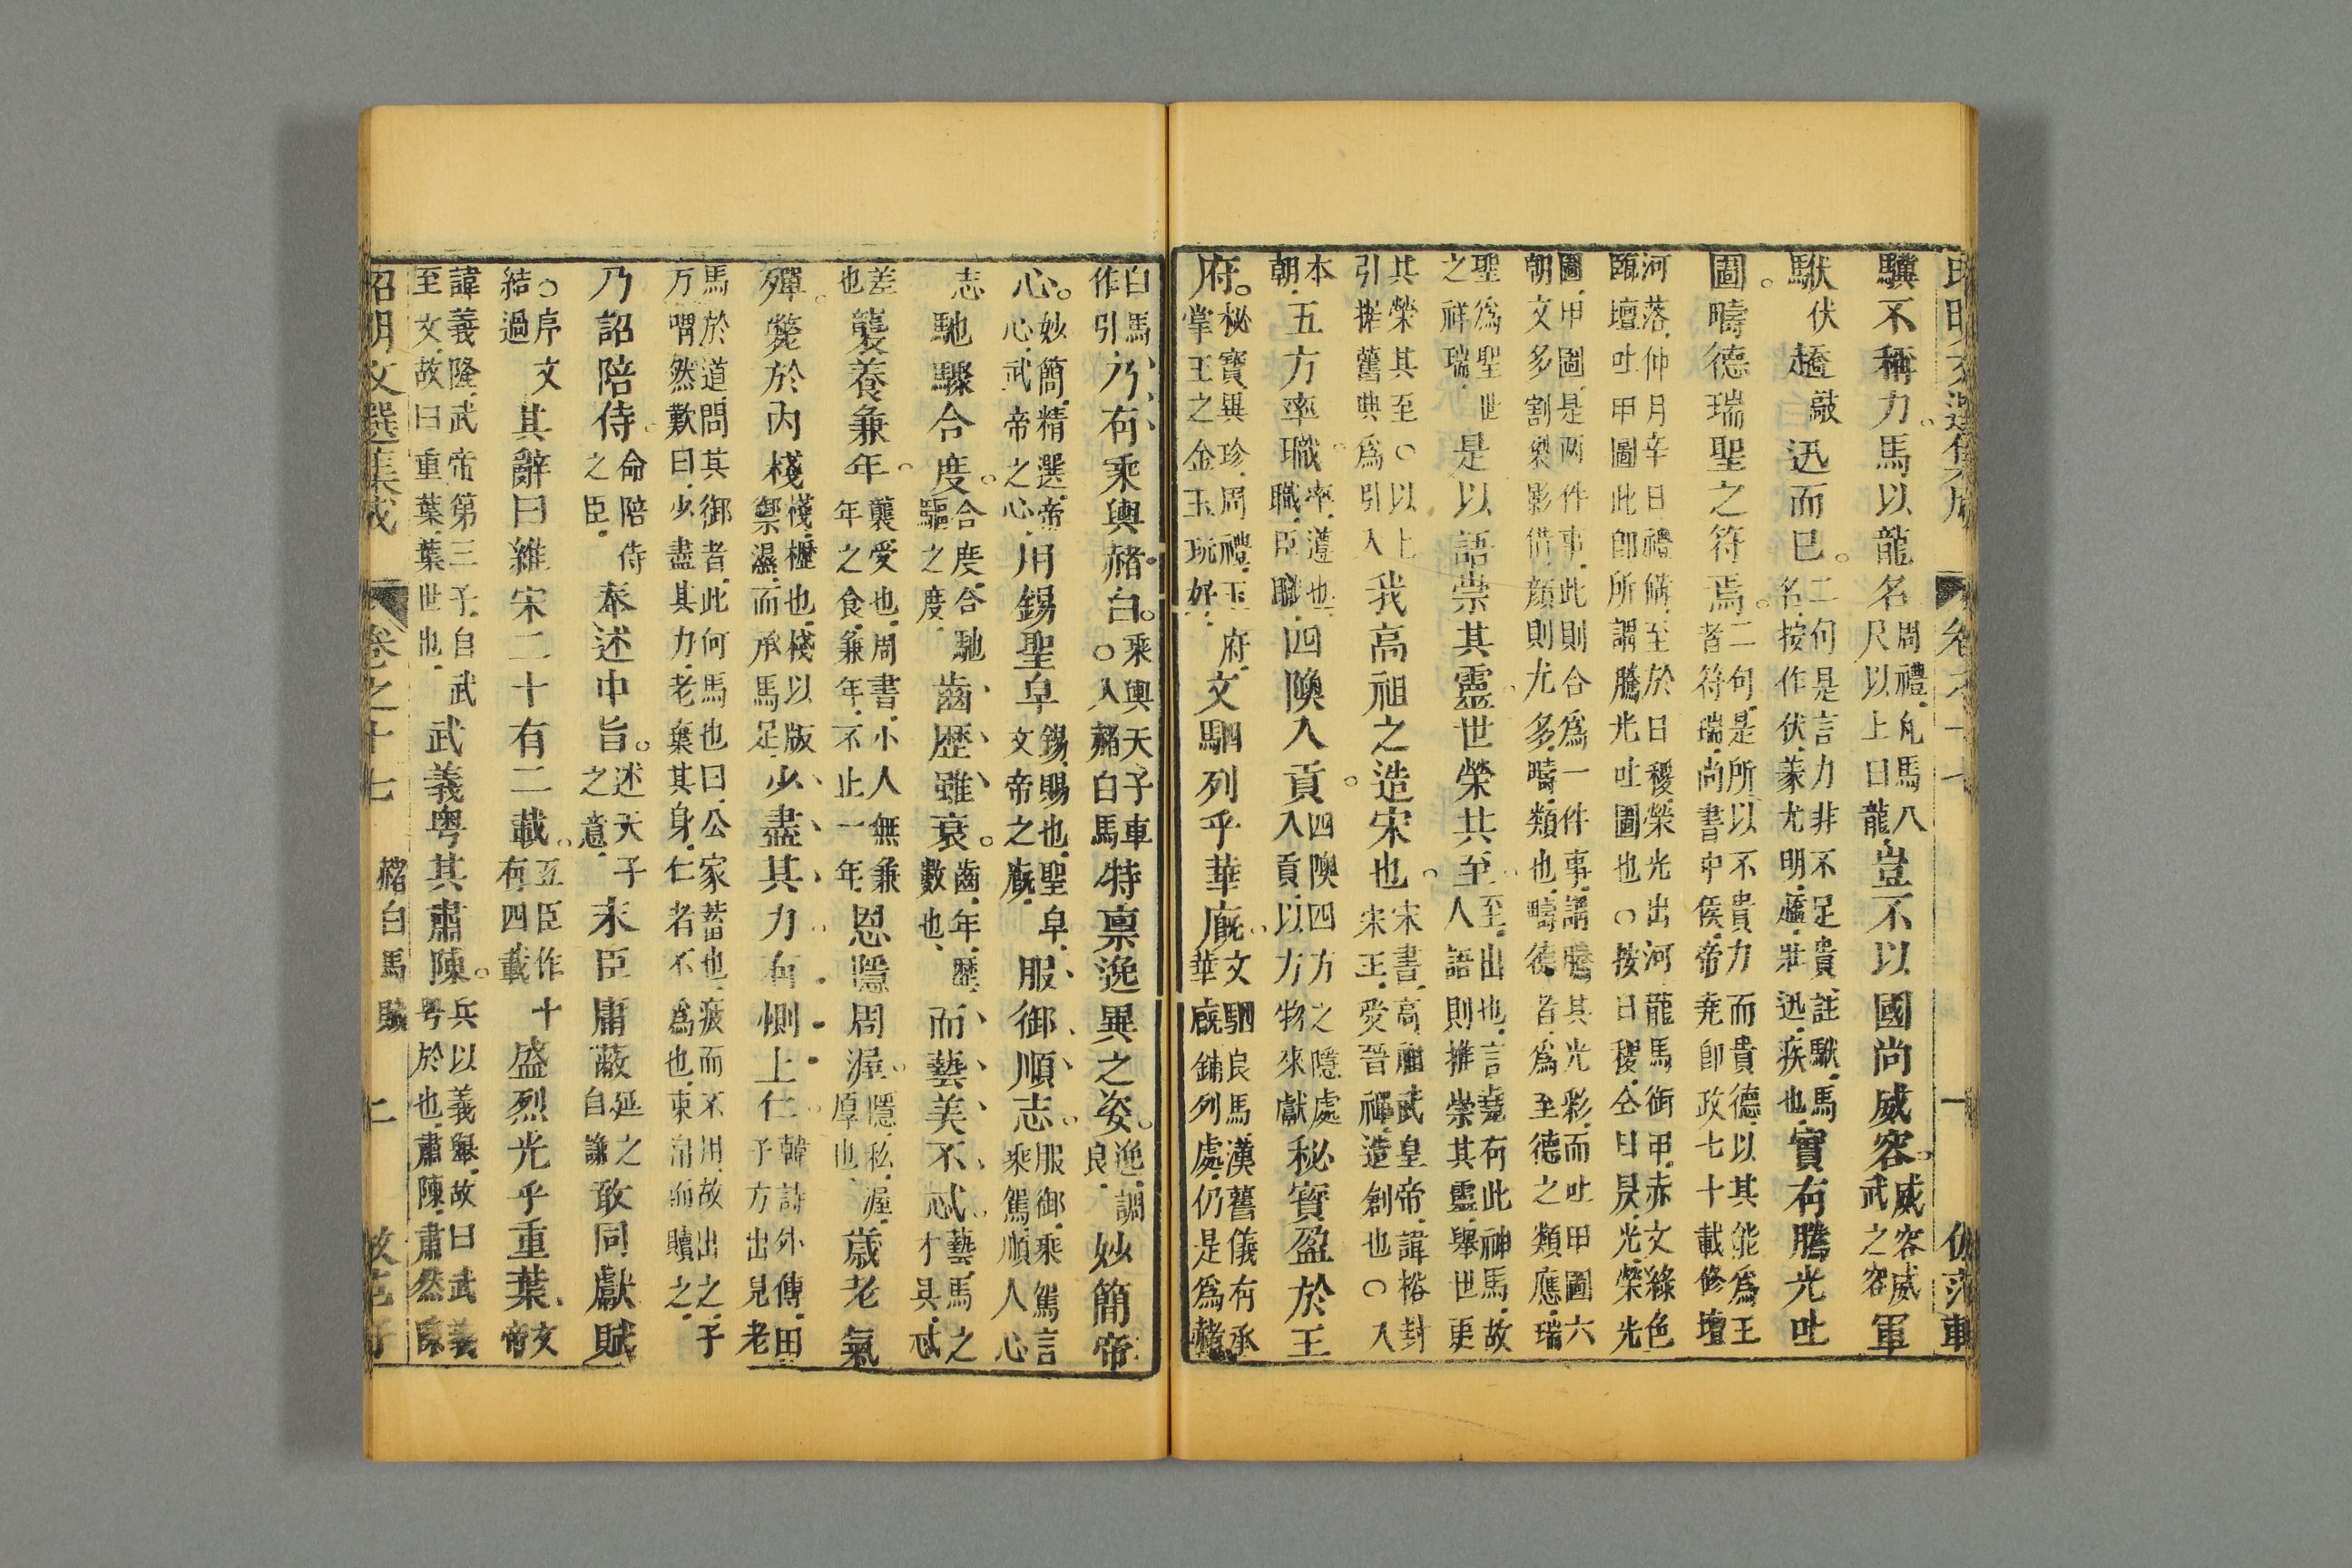 昭明文選集成 卷之十七 一 倣范軒
驥不稱力。馬以龍名周禮,凡馬八尺以上曰龍,豈不以國尚威容。威容,威武之容軍
馱伏趫敲迅而已。二句是言力非不足貴,註馱,馬名,按作伏,義尤明,趫,壯,迅,疾也,實有騰光吐
圖。疇德瑞聖之符焉。二句,是所以不貴力而貴德,以其能爲王者符瑞,尚書中侯,帝堯即政七十載修壇
河落,仲月辛日禮備,至於日稷,榮光出河,龍馬銜甲,赤文綠色,臨壇吐甲圖,此卽所謂騰光吐圖也○按日稷,仝日昃,光,榮光
圖,甲圖,是两件事,此則合爲一件事,謂騰其光彩,而吐甲圖六朝文多割裂影借,顏則尤多,疇,類也,疇德者,爲至德之類應,瑞
聖爲聖世之祥瑞,是以語崇其靈。世榮其至。至,出也,言堯有此神馬,故人語則推崇其靈,舉世更
其榮其至○以上引推舊典爲引入我高祖之造宋也。宋書,高祖武皇帝,諱裕封宋王,受晉禪,造創也○入
本朝,五方率職。率,遵也職,臣職,四隩入貢。四隩四方之隱處入貢,以方物來獻秘寶盈於王
府。秘寶,異珍,周禮,玉府,掌王之金玉玩好,文駟列乎華廐。文駟良馬,漢舊儀有承華廐鋪列處,仍是爲赭
白馬作引乃有乘輿赭白。○乘輿天子車入赭白馬特禀逸異之姿。逸,調良,妙簡帝
心。妙簡,精選,帝心,武帝之心,用錫聖皁錫,賜也,聖皁,文帝之廐,服御順志。服御,乘駕言乘駕順人心
志馳驟合度。合度,合馳驅之度,齒歷雖衰。齒,年,歷數也,而藝美不忒。藝,馬之才具,忒
差也襲養兼年。襲,受也,周書,小人無兼年之食,兼年,不止一年,恩隱周渥。隱,私,渥,厚也,歲老氣
殫。斃於內棧棧,櫪也,棧以版禦濕,而承馬足少盡其力。有惻上仁。韓詩外傳,田子方出見老
馬於道,問其御者,此何馬也曰,公家畜也,疲而不用,故出之,子方喟然歎曰,少盡其力,老棄其身,仁者不爲也,束帛而贖之,
乃詔陪侍。命陪侍之臣,奉述中旨。述天子之意,末臣庸蔽延之自謙敢同獻賦
○序文結過其辭曰維宋二十有二載。五臣作十有四載盛烈光乎重葉、文帝
諱義隆,武帝第三子,自武至文,故曰重葉,葉世也,武義粤其肅陳。兵以義舉,故曰武義粤於也,肅陳,肅然陳
昭明文選集成 卷之十七 赭白馬賦 二